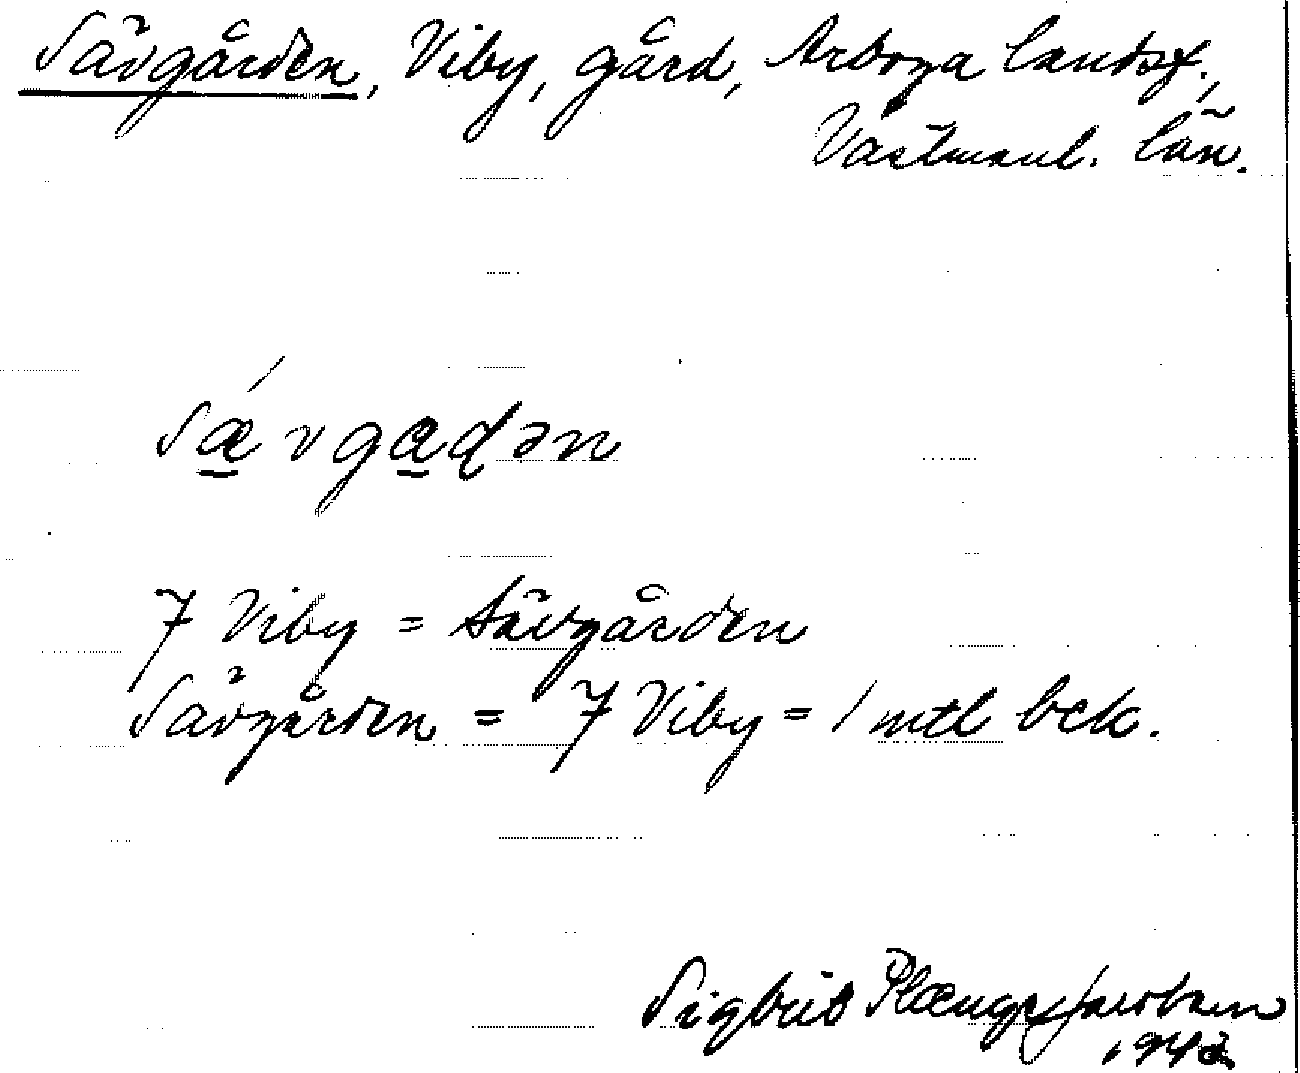 Sävgården, Viby, gård, Arboga landsf.,
Västmanl. län.
sǽ̲vgæ̲ɖən
7 Viby = Sävgården
Sävgården = 7 Viby = 1 mtl bck.
Sigbrit Plænge Jacobson
1942